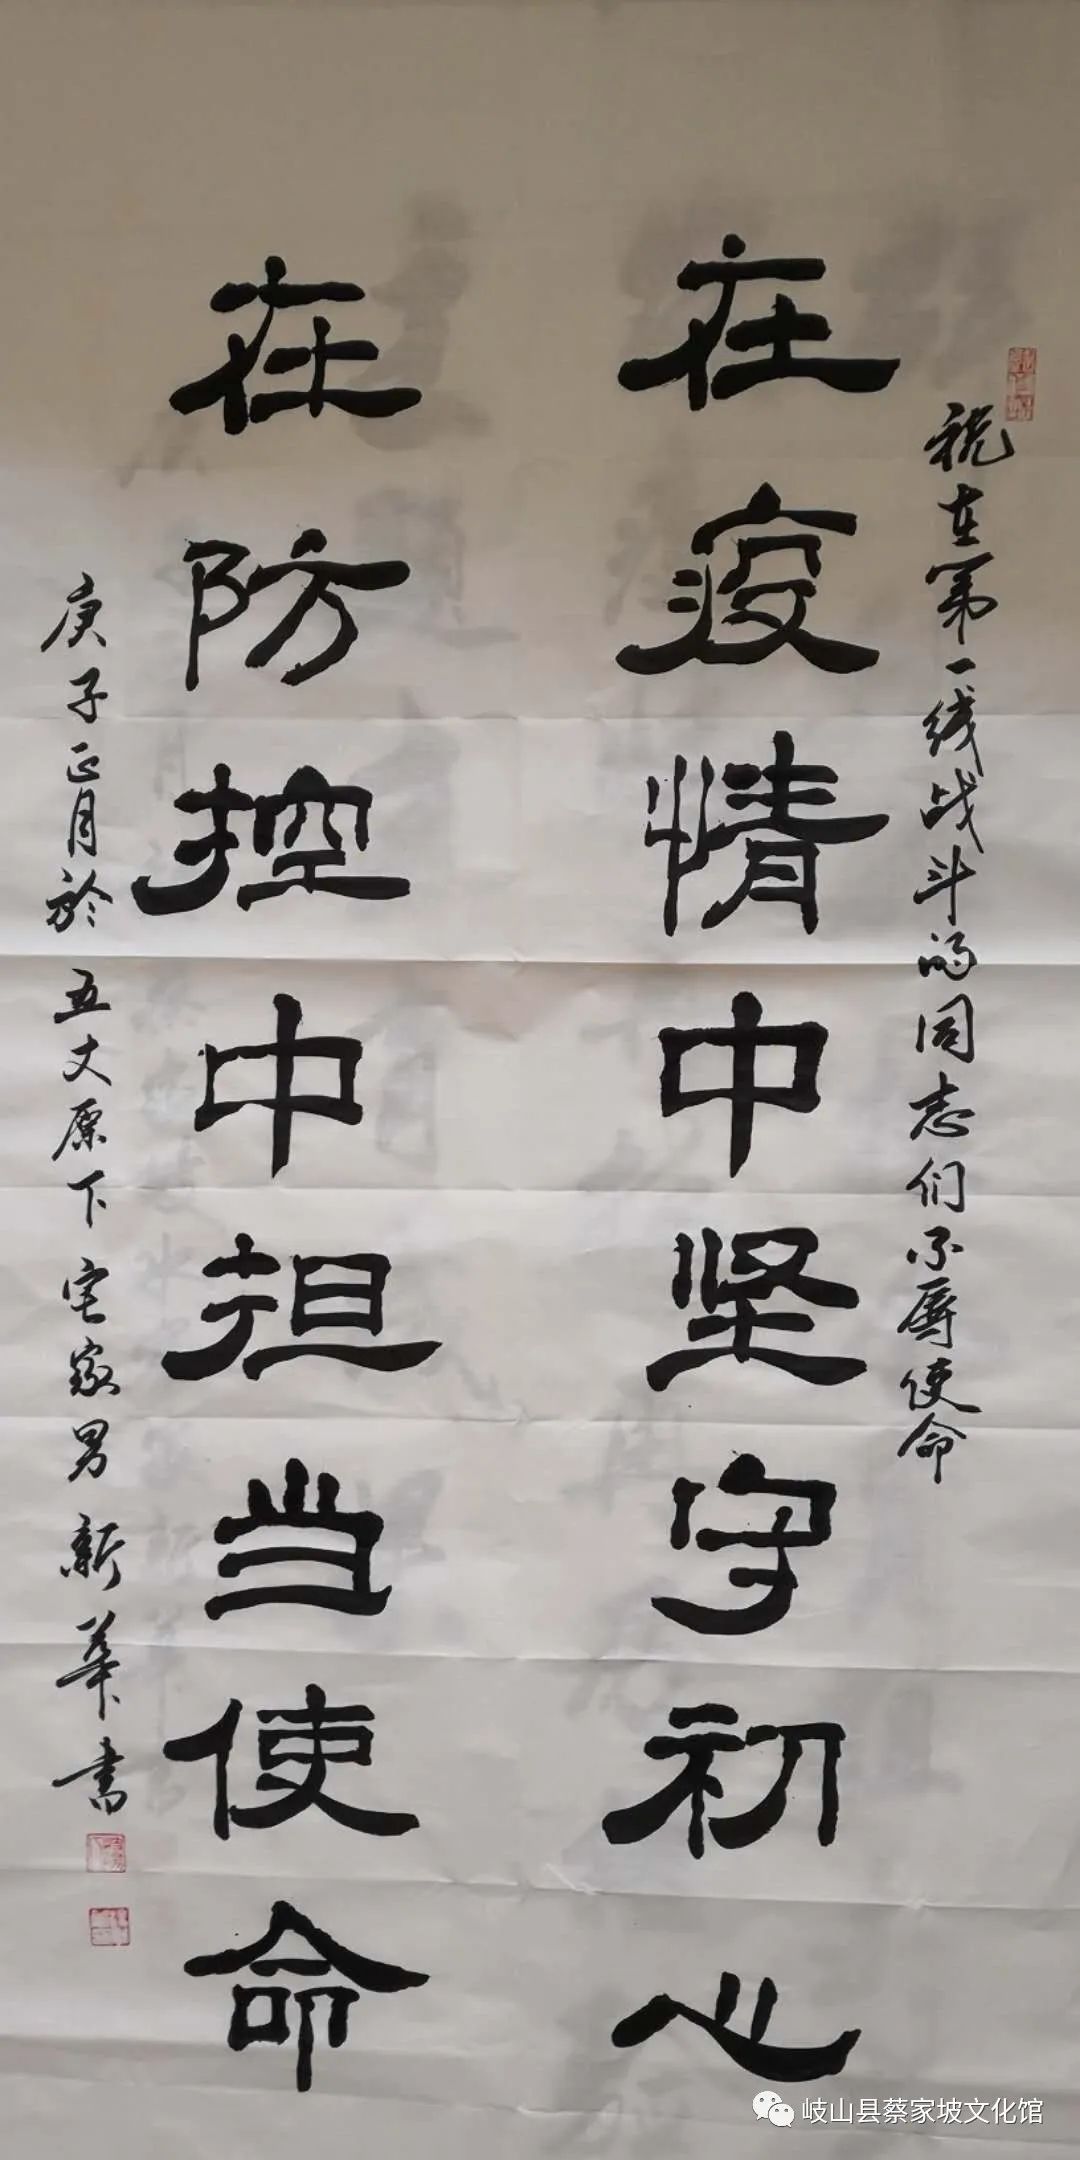 祝在第一线战斗的同志们不辱使命
在疫情中坚守初心
在防控中担当使命
庚子正月於五丈原下宅家男新华书
岐山县蔡家坡文化馆